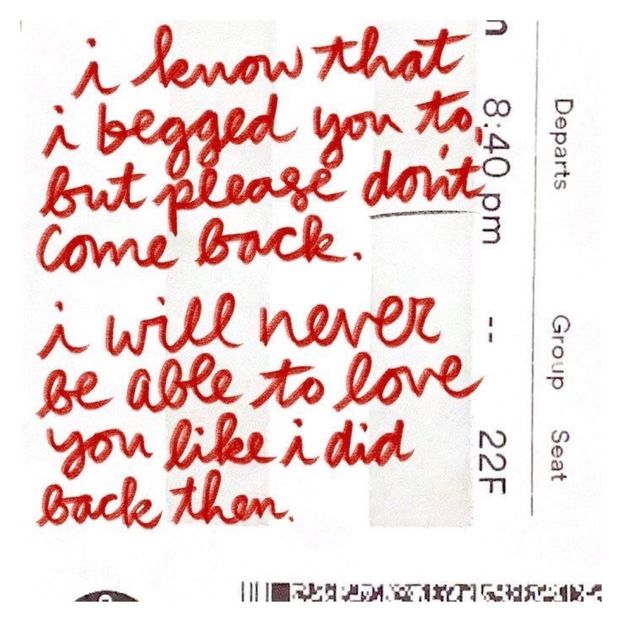 i know that
i begged you to,
but please don't
come back.
i will never
be able to love
you like i did
back then.
Departs
8:40 pm
Group
--
Seat
22F